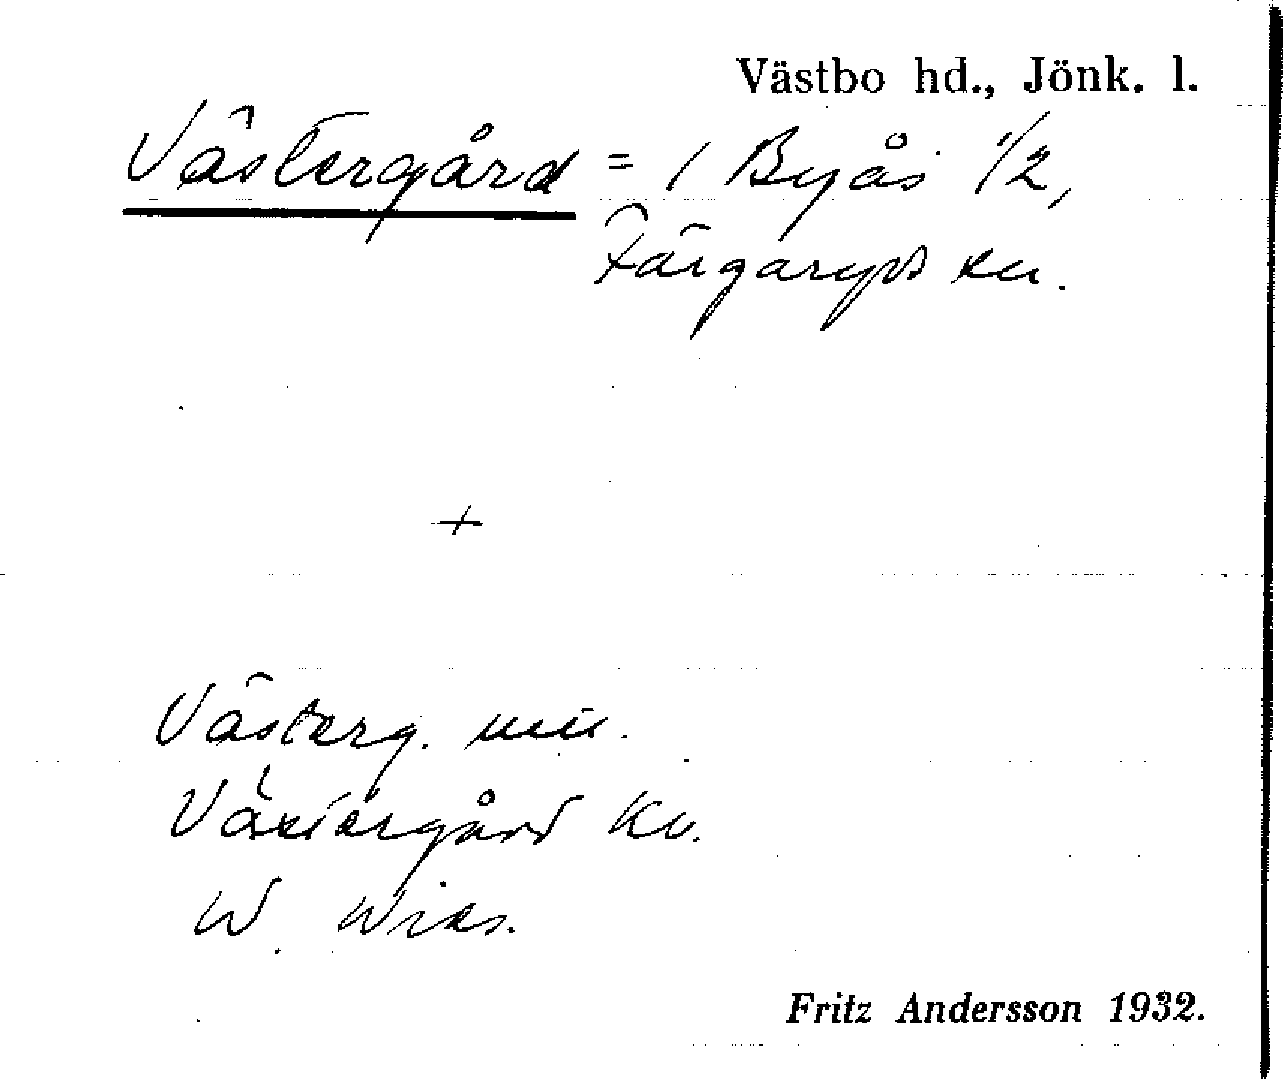 Västbo hd., Jönk. l.
Västergård = 1 Byås 1/2,
Färgaryds sn.
+
Västerg.
Västergård Kv.
W.
Fritz Andersson 1932.